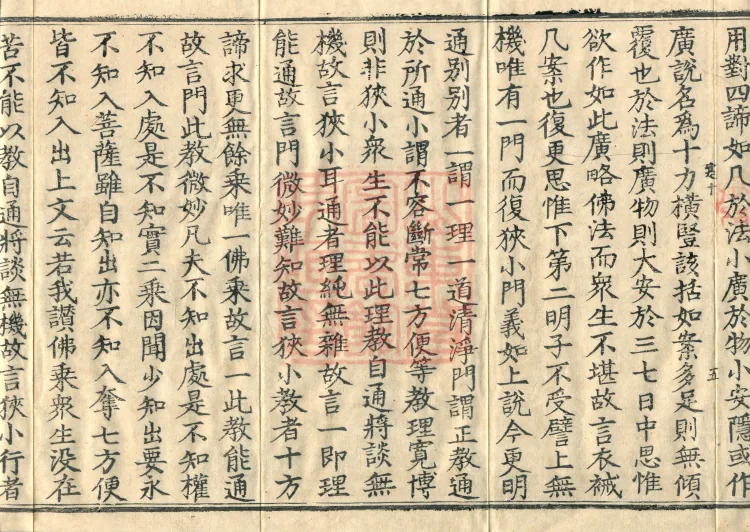 用對四諦如几於法小廣於物小安隱或作
廣說名為十力橫豎該括如案多足則無傾
覆也於法則廣物則大安於三七日中思惟
欲作如此廣略佛法而衆生不堪故言衣裓
几案也復更思惟下第二明子不受譬上無
機唯有一門而復狹小門義如上說今更明
通別別者一謂一理一道清淨門謂正教通
於所通小謂不容斷常七方便等教理寬博
則非狹小衆生不能以此理教自通將談無
機故言狹小耳通者理純無雜故言一即理
能通故言門微妙難知故言狹小教者十方
諦求更無餘乘唯一佛乘故言一此教能通
故言門此教微妙凡夫不知出處是不知權
不知入處是不知實二乘因聞少知出要永
不知入菩薩雖自知出亦不知入奪七方便
皆不知入出上文云若我讚佛乘衆生没在
苦不能以教自通將談無機故言狹小行者
五